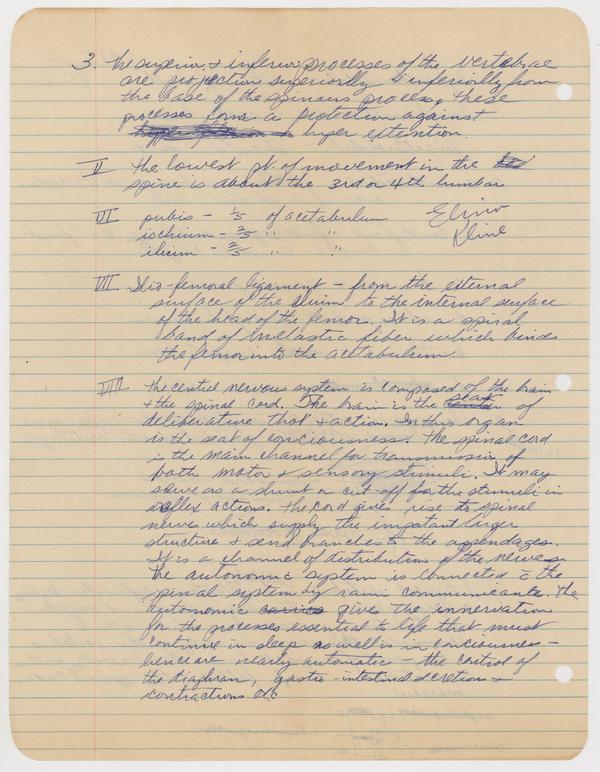 3. The superior & inferior processes of the vertebrae
are projection superiorly & inferiorly from
the base of the spinous process, these
processes form a protection against
hyper extention.
II the lowest pt. of movement in the
spine is about the 3rd or 4th lumbar
VI pubis - 1/5 of acetabulum
ischium - 2/5 " "
ilium - 2/5 " "
Elino
Kline
VII Ilio-femoral ligament - from the external
surface of the ilium to the internal surface
of the head of the femor. It is a spiral
band of inelastic fiber which binds
the femor into the acetabulum.
VIII The central nervous system is composed of the brain
& the spinal cord. The brain is the seat of
deliberature that & action. In this organ
is the seat of conciousness. The spinal cord
is the main channel for transmission of
both motor & sensory stimuli. It may
serve as a shunt or cut-off for the stimuli in
reflex actions. The cord gives rise to spinal
nerves which supply the important larger
structure & send branches to the appendages.
It is a channel of distribution of the nerves.
The autonomic system is connected c the
spinal system by rami communicante. The
autonomic carries give the innervation
for the processes essential to life that must
continue in sleep as well is in conciousness -
hence are nearly automatic - the control of
the diaphram, gastro-intestinal secretions &
contractions etc